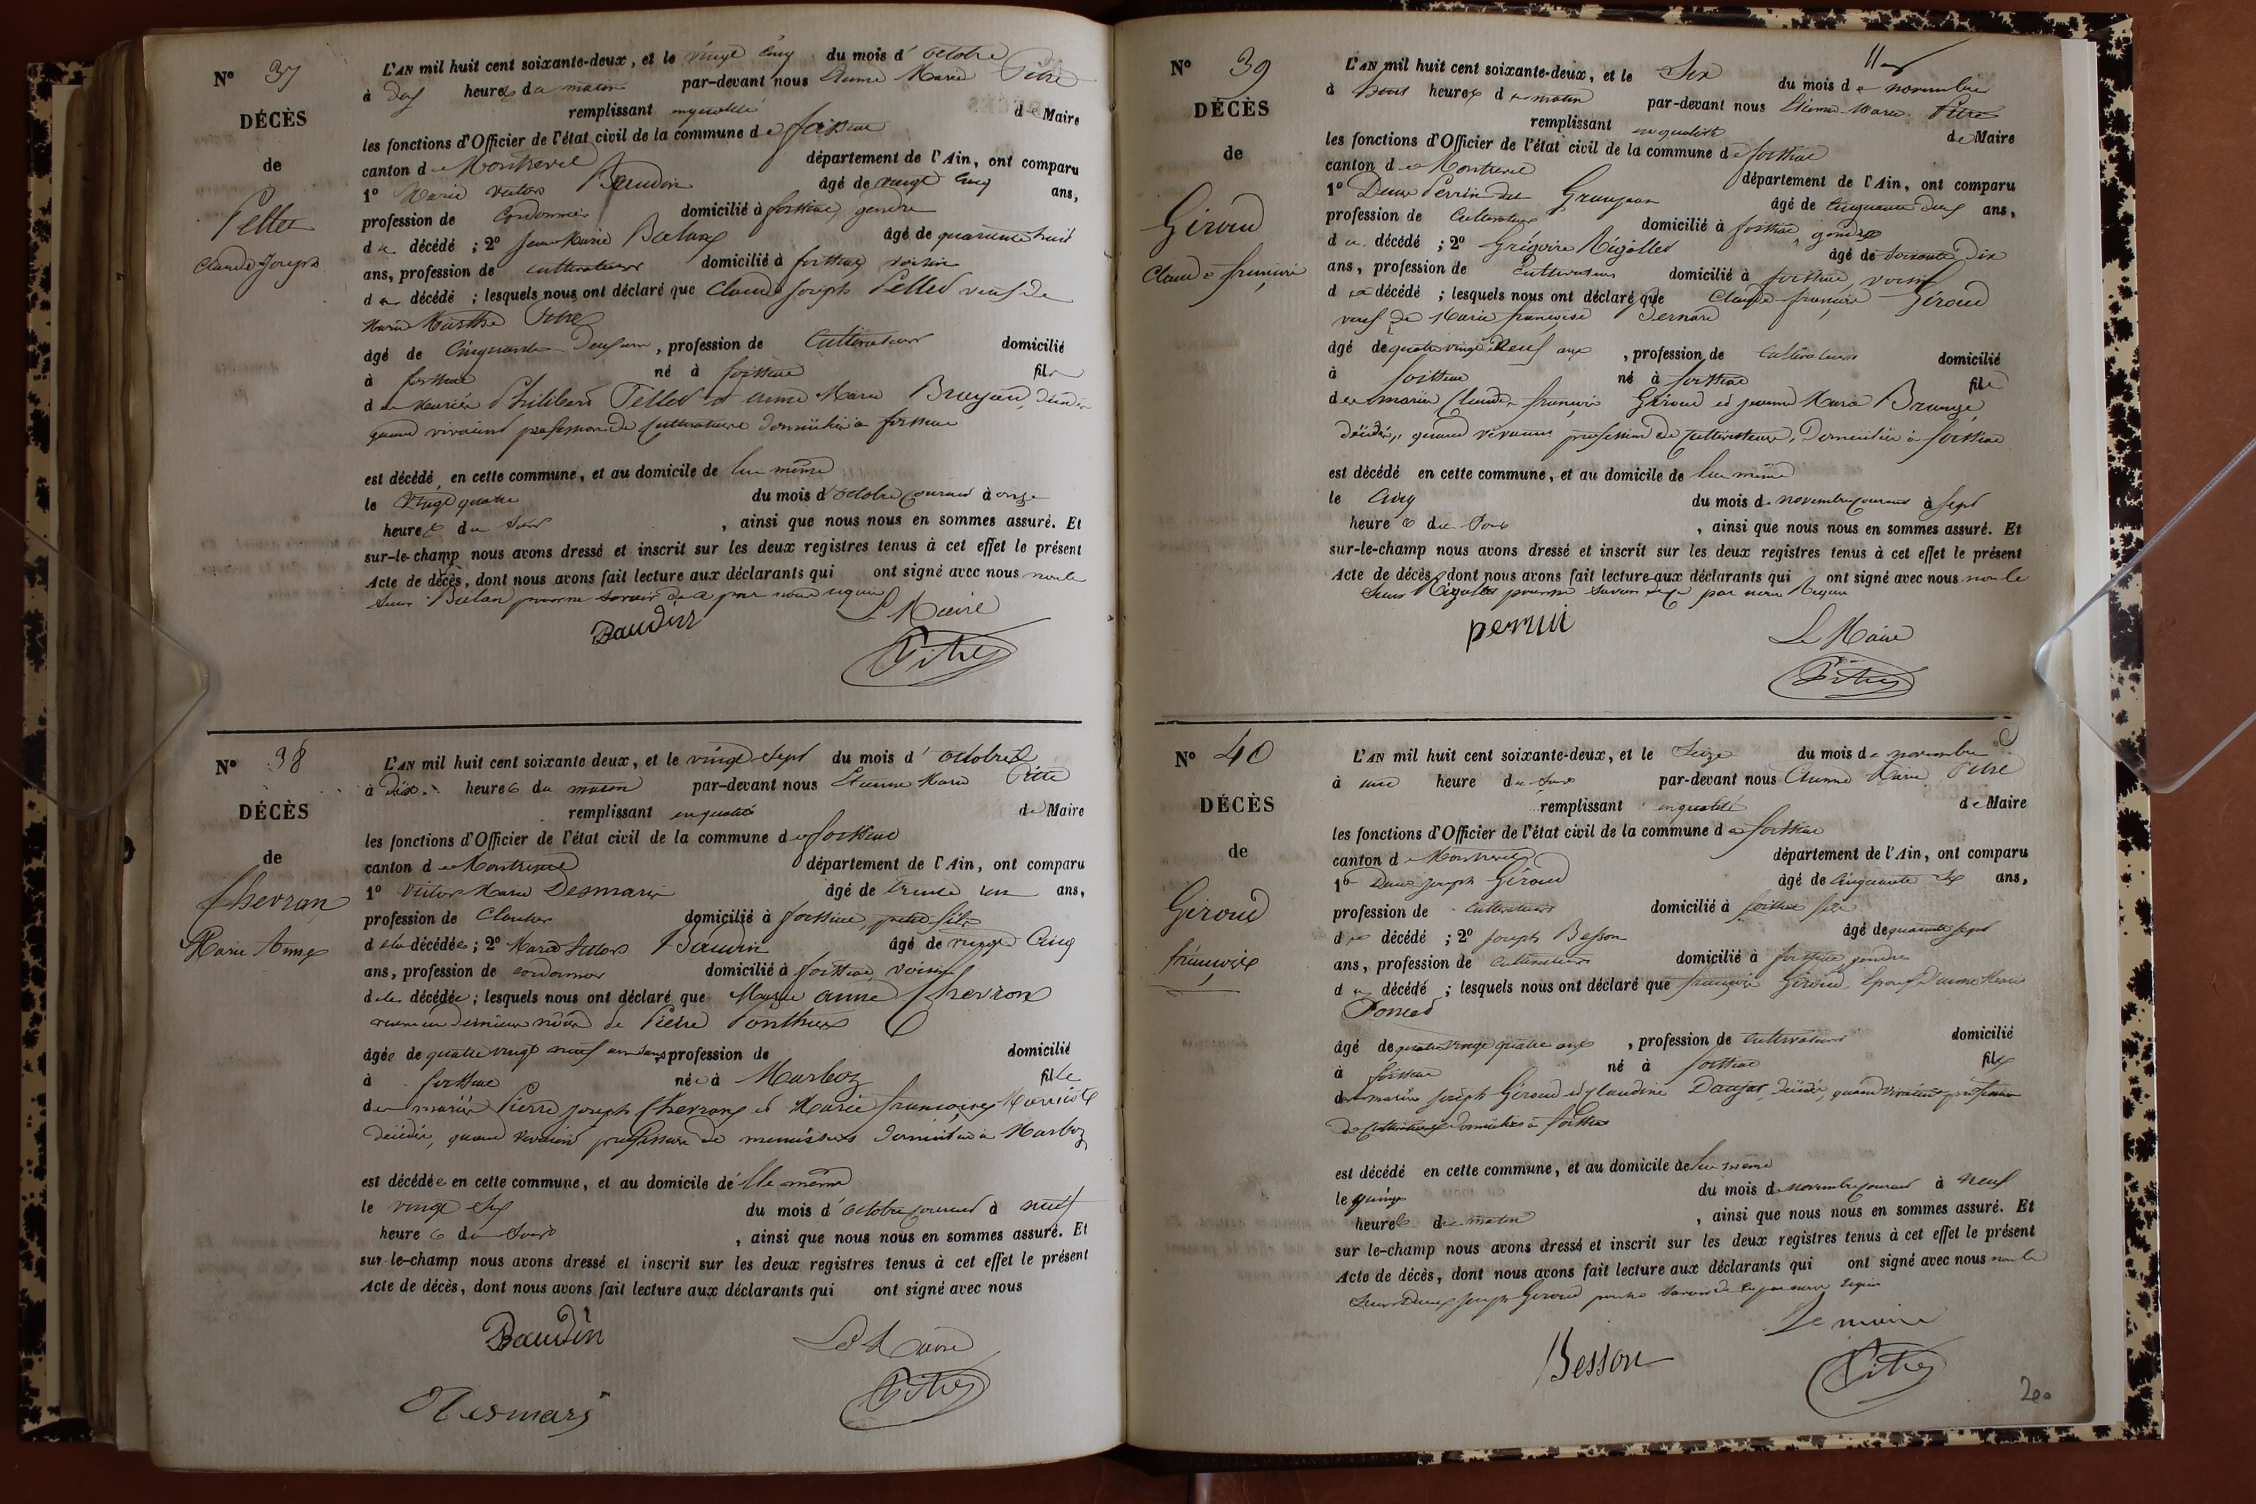 N° 37
DÉCÈS
de
Pellet
Claude Joseph
L'AN mil huit cent soixante-deux, et le vingt cinq du mois d'octobre
à dix heures du matin par-devant nous Etienne Marie Pitre
remplissant en qualité de Maire
les fonctions d'Officier de l'état civil de la commune de foissiat
canton de Montrevel département de l'Ain, ont comparu
1° Marie victor Baudin âgé de vingt cinq ans,
profession de Cordonnier domicilié à foissiat, gendre
du décédé ; 2° Jean Marie Balan âgé de quarante huit
ans, profession de cultivateur domicilié à foissiat voisin
du décédé ; lesquels nous ont déclaré que Claude Joseph Pellet veuf de
Marie Marthe Pitre
âgé de Cinquante deux ans, profession de Cultivateur domicilié
à foissiat né à foissiat fils
de mariés Philibert Pellet et anne Marie Broyard, décédés
quand vivaient profession de cultivateurs domiciliés à foissiat
est décédé en cette commune, et au domicile de lui même
le vingt quatre du mois d'octobre courant à onze
heures du soir , ainsi que nous nous en sommes assuré. Et
sur-le-champ nous avons dressé et inscrit sur les deux registres tenus à cet effet le présent
Acte de décès, dont nous avons fait lecture aux déclarants qui ont signé avec nous non le
sieur Balan pour ne savoir de ce par nous requis
Baudin
Le Maire
Pitre
N° 38
DÉCÈS
de
Chevron
Marie Anne
L'AN mil huit cent soixante-deux, et le vingt sept du mois d'octobre
à dix heures du matin par-devant nous Etienne Marie Pitre
remplissant en qualité de Maire
les fonctions d'Officier de l'état civil de la commune de foissiat
canton de Montrevel département de l'Ain, ont comparu
1° Victor Marie Desmaris âgé de trente un ans,
profession de domicilié à foissiat, petit fils
de la décédée ; 2° Marie Victor Baudin âgé de vingt Cinq
ans, profession de cordonnier domicilié à foissiat voisin
de la décédée ; lesquels nous ont déclaré que Marie anne Chevron
veuve en dernières noces de Pierre Ponthus
âgée de quatre vingt neuf ans sans profession de domicilié
à foissiat née à Marboz fille
de mariés Pierre joseph Chevron et Marie françoise
décédés, quand vivaient profession de domiciliés à Marboz
est décédée en cette commune, et au domicile de Elle même
le vingt six du mois d'octobre courant à neuf
heures du soir , ainsi que nous nous en sommes assuré. Et
sur-le-champ nous avons dressé et inscrit sur les deux registres tenus à cet effet le présent
Acte de décès, dont nous avons fait lecture aux déclarants qui ont signé avec nous
Baudin
Le Maire
Pitre
Desmaris
N° 39
DÉCÈS
de
Giroud
Claude françois
L'AN mil huit cent soixante-deux, et le Six du mois de novembre
à heures du matin par-devant nous Etienne Marie Pitre
remplissant en qualité de Maire
les fonctions d'Officier de l'état civil de la commune de foissiat
canton de Montrevel département de l'Ain, ont comparu
1° Denis Perrin dit Granjean âgé de Cinquante deux ans,
profession de Cultivateur domicilié à foissiat, gendre
du décédé ; 2° Grégoire Rigollet âgé de Soixante Dix
ans, profession de Cultivateur domicilié à foissiat, voisin
du décédé ; lesquels nous ont déclaré que Claude françois Giroud
veuf de Marie françoise Bernard
âgé de quatre vingt neuf ans, profession de Cultivateur domicilié
à foissiat né à foissiat fils
de mariés Claude françois Giroud et jeanne Marie
décédés, quand vivaient profession de cultivateurs, domiciliés à foissiat
est décédé en cette commune, et au domicile de lui même
le Cinq du mois de novembre courant à sept
heures du soir , ainsi que nous nous en sommes assuré. Et
sur-le-champ nous avons dressé et inscrit sur les deux registres tenus à cet effet le présent
Acte de décès, dont nous avons fait lecture aux déclarants qui ont signé avec nous non le
sieur Rigollet pour ne savoir de ce par nous Requis
perrin
Le Maire
Pitre
N° 40
DÉCÈS
de
Giroud
françois
L'AN mil huit cent soixante-deux, et le Seize du mois de novembre
à une heure du soir par-devant nous Etienne Marie Pitre
remplissant en qualité de Maire
les fonctions d'Officier de l'état civil de la commune de foissiat
canton de Montrevel département de l'Ain, ont comparu
1° Denis joseph Giroud âgé de Cinquante six ans,
profession de cultivateur domicilié à foissiat
du décédé ; 2° joseph Besson âgé de quarante sept
ans, profession de cultivateur domicilié à foissiat gendre
du décédé ; lesquels nous ont déclaré que françois Giroud Epoux d'anne Marie
Poncet
âgé de quatre vingt quatre ans, profession de Cultivateur domicilié
à foissiat né à foissiat fils
de mariés joseph Giroud et Claudine Danjat, décédés, quand vivaient profession
de Cultivateurs domiciliés à foissiat
est décédé en cette commune, et au domicile de lui même
le quinze du mois de novembre courant à neuf
heures du matin , ainsi que nous nous en sommes assuré. Et
sur-le-champ nous avons dressé et inscrit sur les deux registres tenus à cet effet le présent
Acte de décès, dont nous avons fait lecture aux déclarants qui ont signé avec nous non le
sieur Denis joseph Giroud pour ne savoir de ce par nous requis
Le maire
Besson
Pitre
200